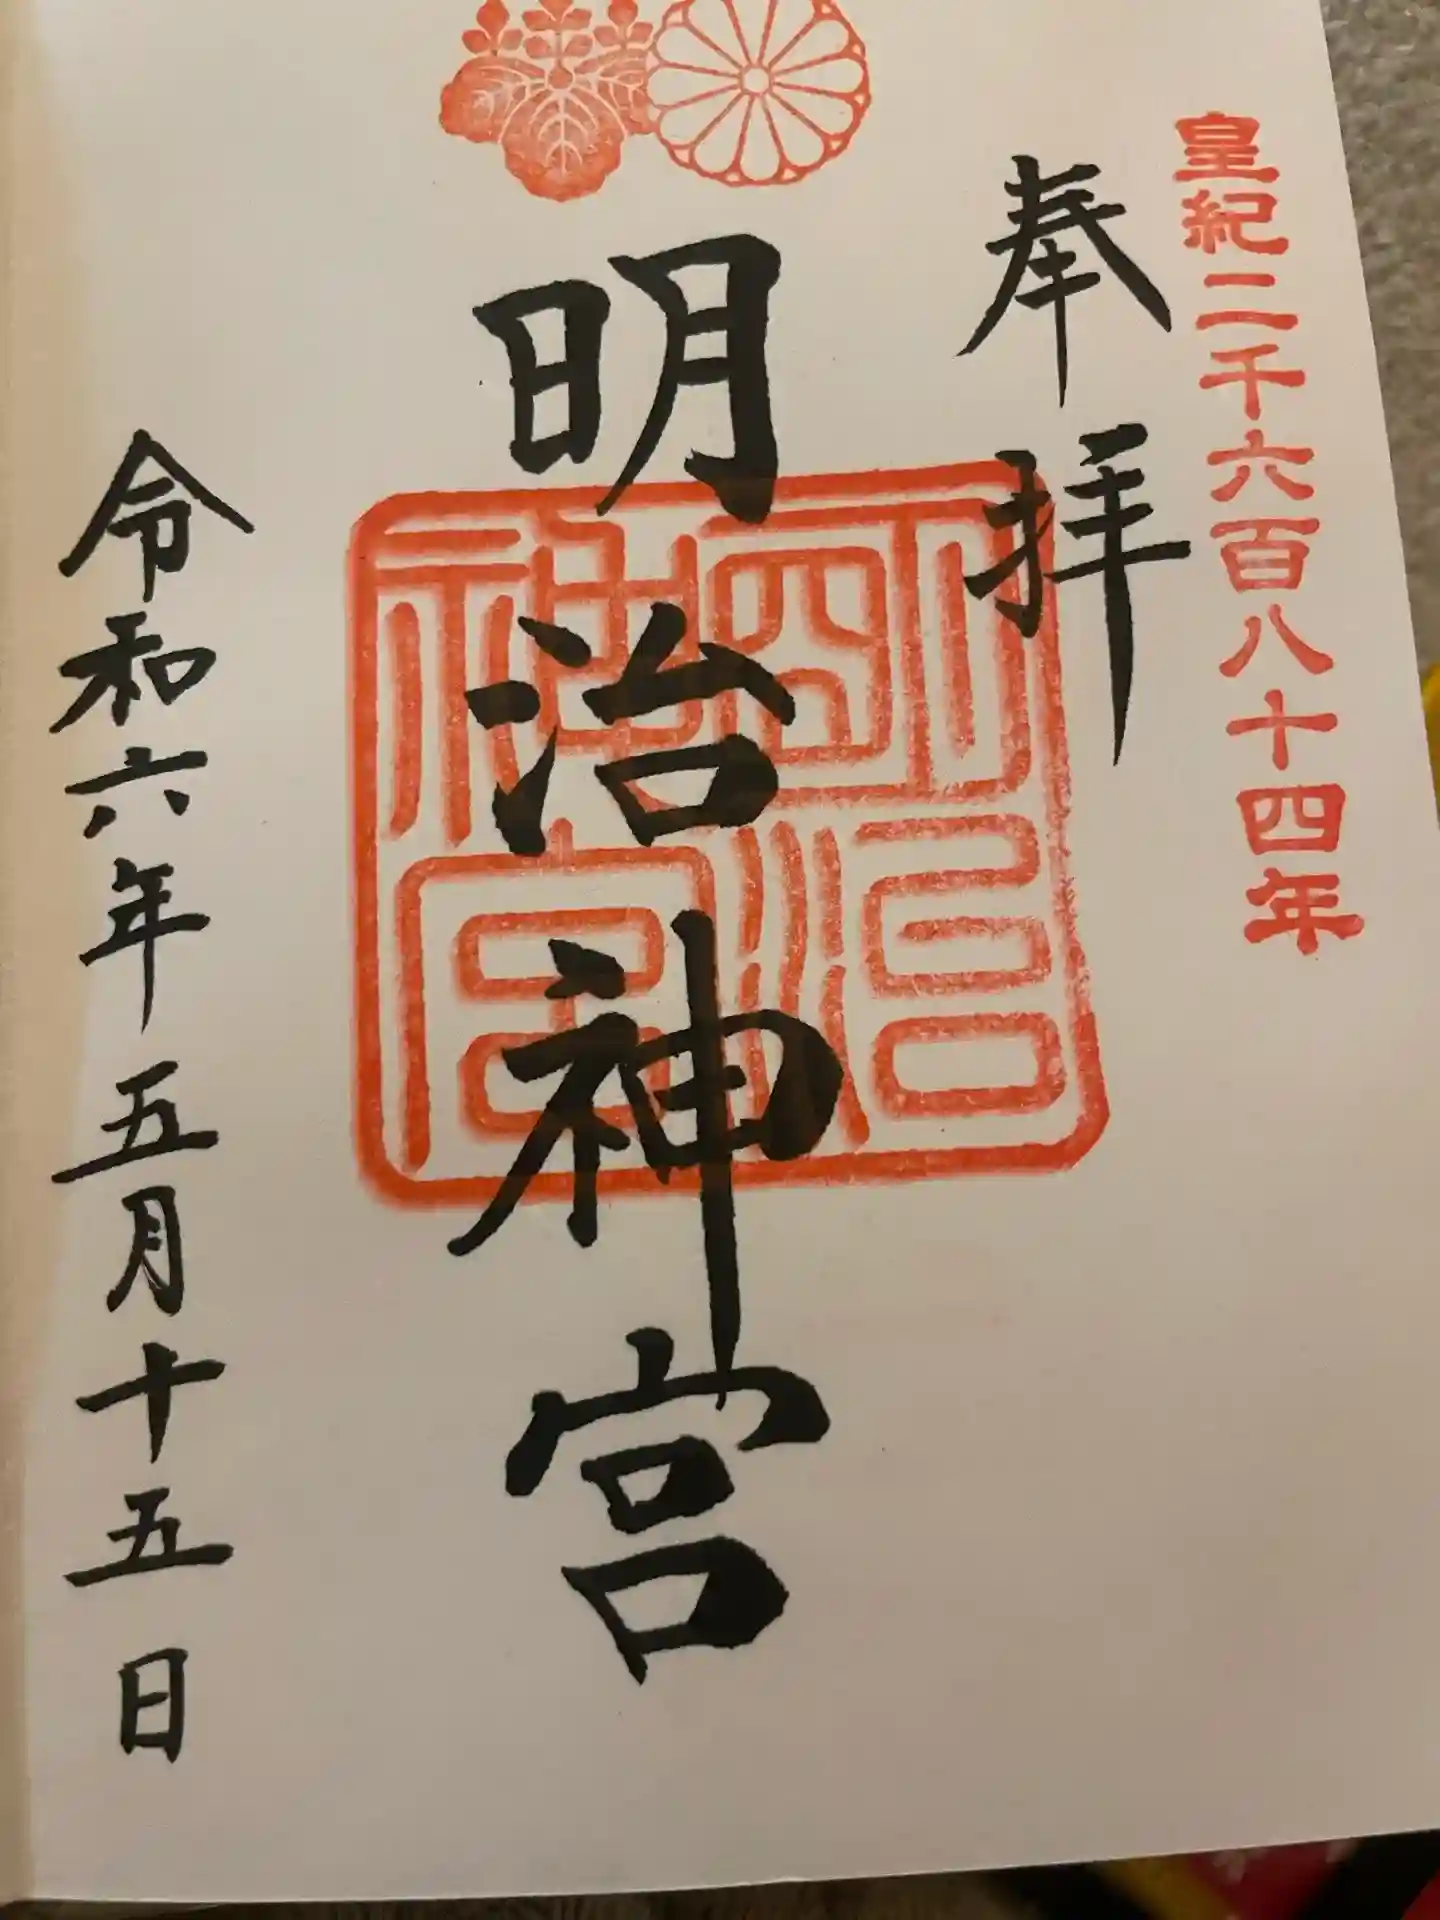 皇紀二千六百八十四年
奉拝
明治神宮
明治神宮
令和六年五月十五日